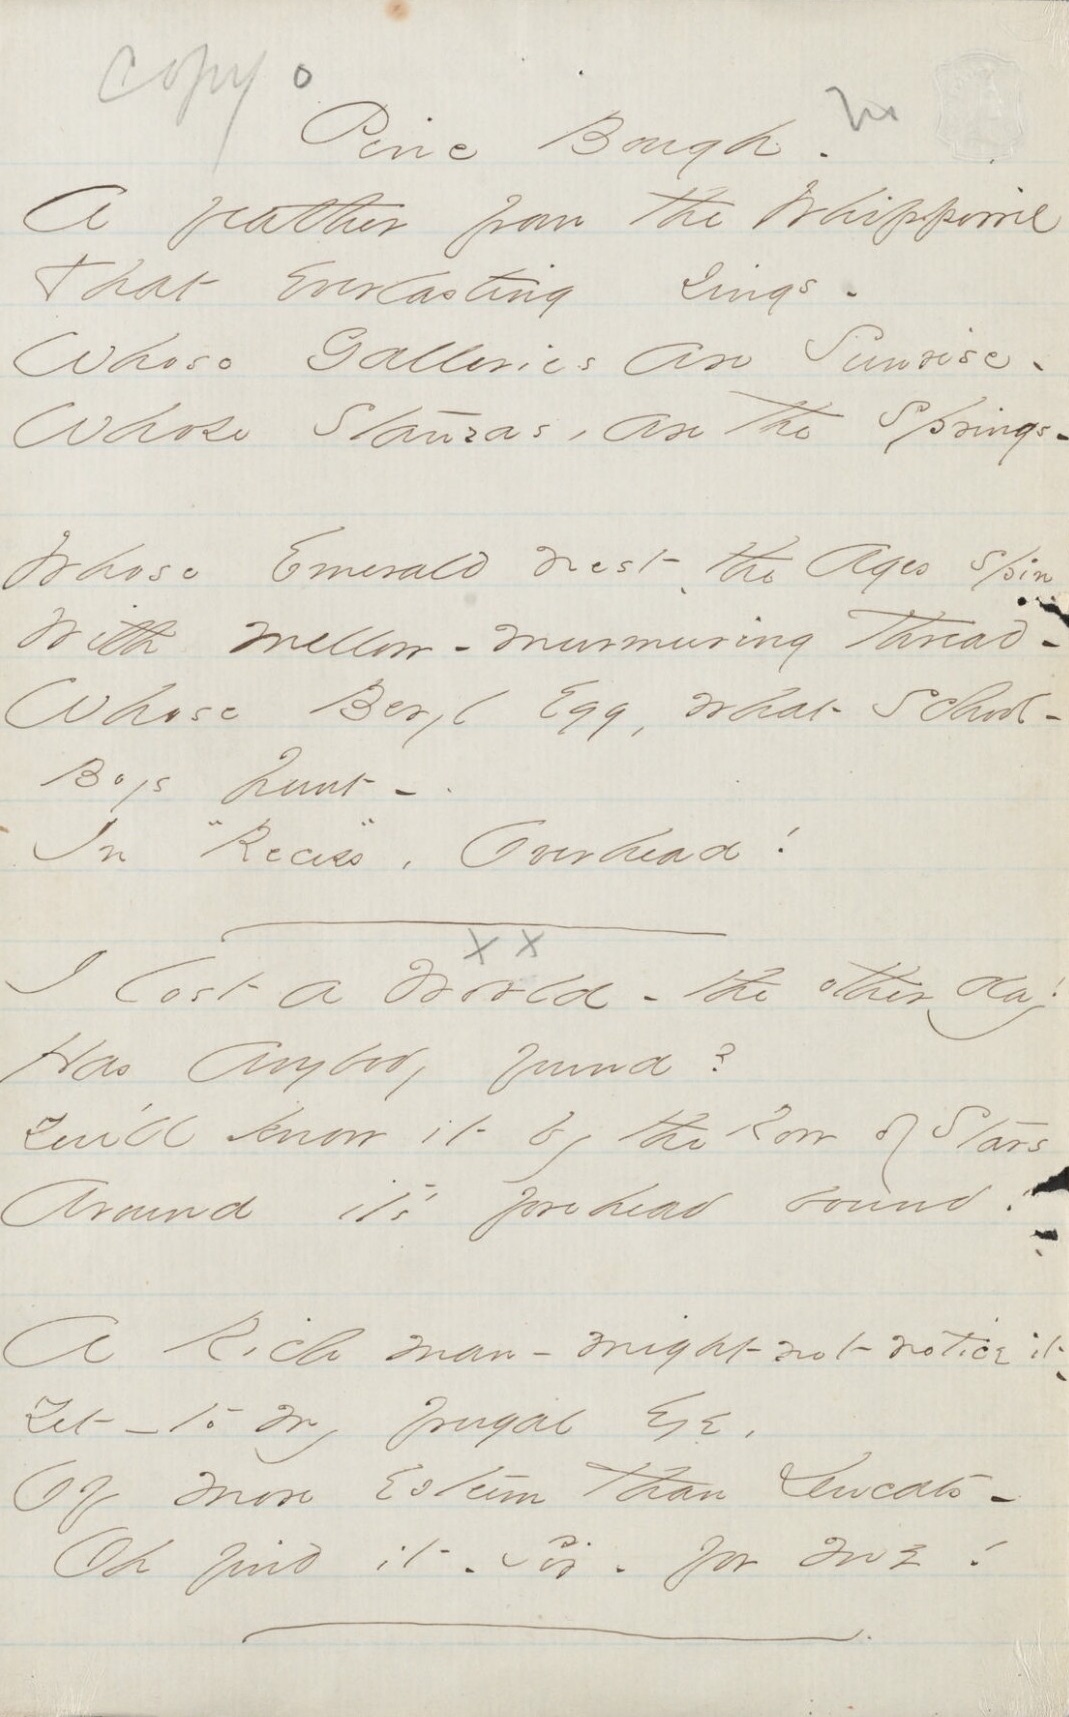 copy o
Pine Bough.
A feather from the Whippowil
That Everlasting sings -
Whose Galleries are Sunrise -
Whose Stanzas, are the Springs -
Whose Emerald Nest the Ages spin
With mellow - murmuring Thread -
Whose Beryl Egg, what School-
Boys hunt -
In "Recess", Overhead!
X X
I lost a World - the other day!
Has Anybody found?
You'll know it by the Row of Stars
Around it's forehead bound!
A Rich man - might not notice it -
Yet - to my frugal Eye,
Of more Esteem than Ducats -
Oh find it - Sir - for me!